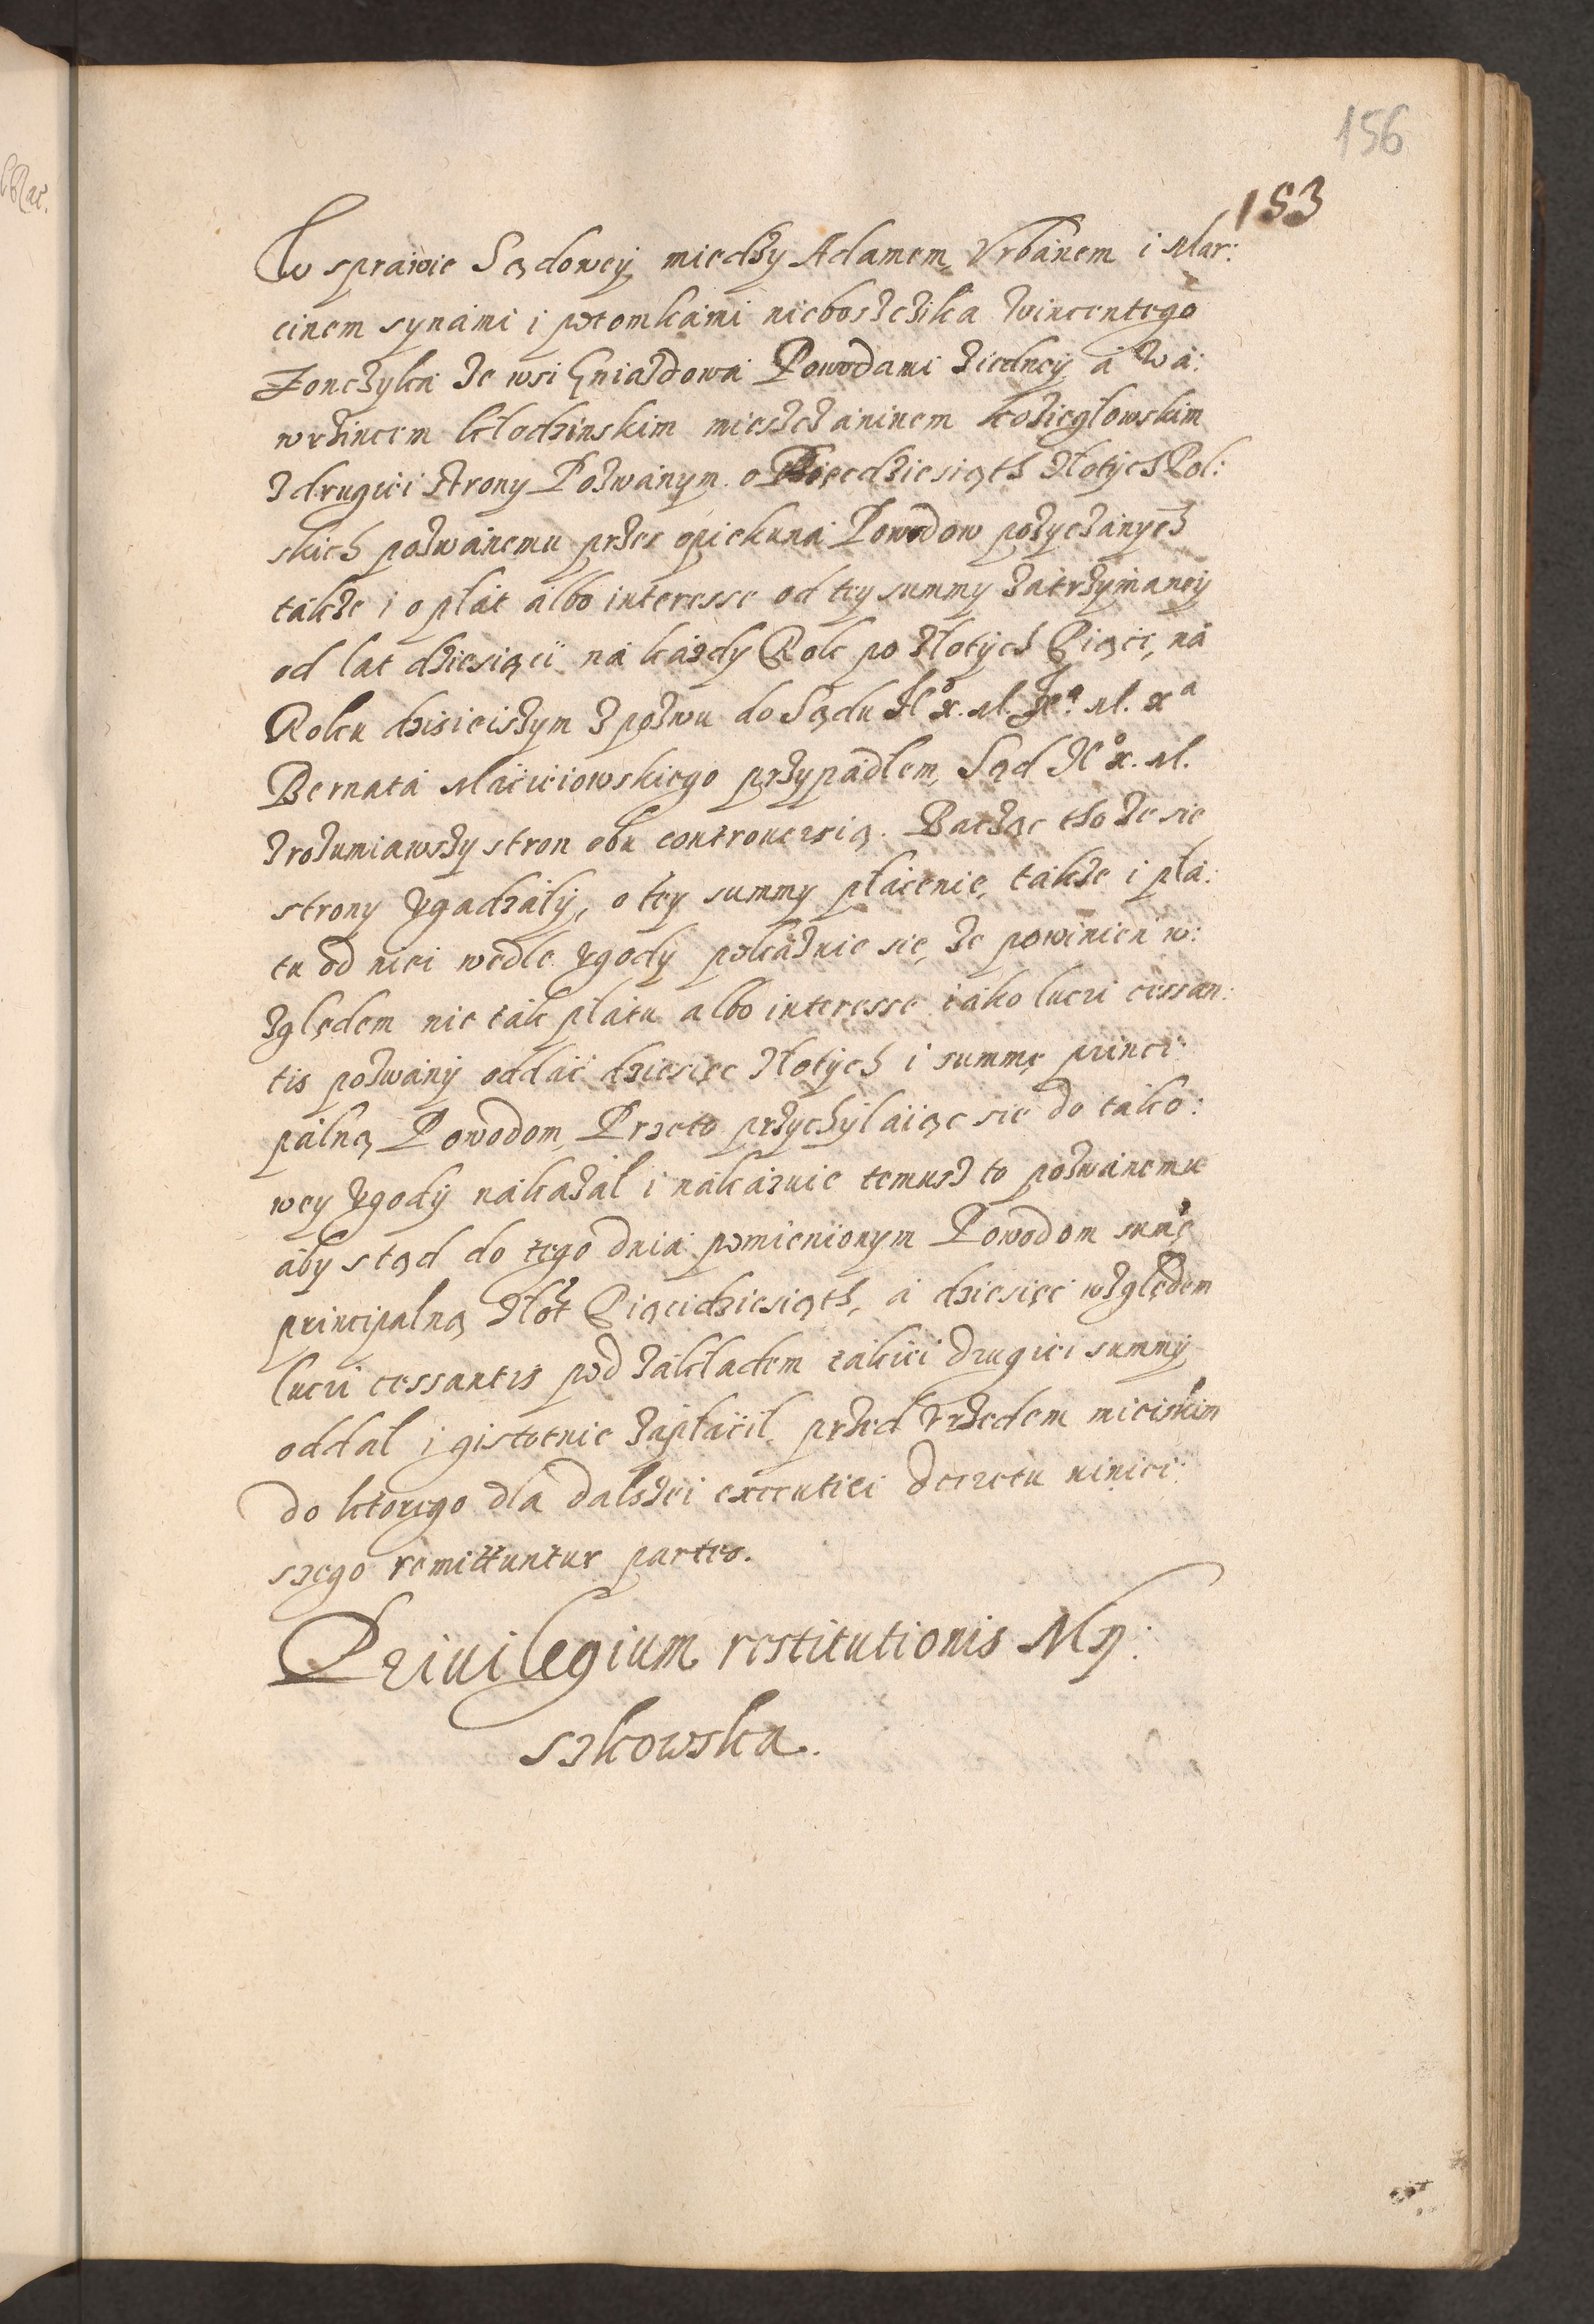 156
153
W sprawie Sądowey miedzy Adamem, Vrbánem i Mar:
cinem synámi i potomkámi nieboszczika Wincentego
Zonczyká ze wsi Gniazdowá Powodami ziedney á Wá:
wrzincem Kłodzinskim mieszczáninem kozieglowskim
zdrugiei strony Pozwánym o Pięcdziesiąth złotych Pol:
skich pozwánemu przes opiekuná Powodow pożyczánych
tákze i o płát álbo interesse od tey summy zátrzymáney
od lat dziesiąci ná káżdy Rok po złotych Piąci, ná
Roku dzisieiszym z pozwu do Sądu Jº x. M. Jeº M. xª
Bernatá Máciciowskiego przypádłem, Sąd Jº x. M.
zrozumiawszy stron obu controuersią. Bacząc tho że sie
strony zgadzáły, o tey summy płácenie, tákze i płá:
tu od niei wedle zgody pokázuie sie, że powinien w:
zględem nie ták płátu albo interesse iáko lucri cessan:
tis pozwány oddáć dziesięc złotych i summę princi:
pálną Powodom, Przeto przychylaiąc sie do táko:
wey zgody nákazał i nákázuie temusz to pozwánemu
áby stąd do tego dniá pomienionym Powodom sumę
principalną złot Piącidziesiąth, á dziesięc względem
lucri cessantis pod zakładem tákiei drugiei summy
oddał i gistotnie zápłácił, przed Vrzedem mieiskim
do ktorego dlá dálszei executiei decretu niniei:
szego remittuntur partes.
Priuilegium restitutionis My:
szkowska.